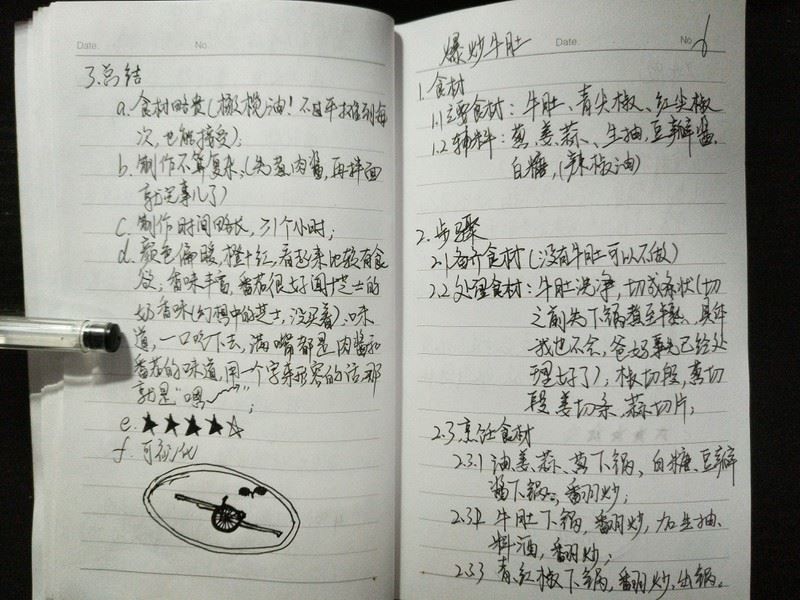 Date. No.
3.总结
a.食材略贵(橄榄油!不过平摊到每
次,也能接受);
b.制作不算复杂,(先熬肉酱,再拌面
就完事儿了)
c.制作时间略长,>1个小时;
d.颜色偏暖,橙+红,看起来比较有食
欲;香味丰富,番茄很好闻+芝士的
奶香味(幻想中的芝士,没买着).味
道,一口吃下去,满嘴都是肉酱和
番茄的味道,用一个字来形容的话那
就是“嗯~~”;
e.★★★★☆
f.可视化
爆炒牛肚 Date. No.
1.食材
1.1主要食材:牛肚、青尖椒、红尖椒
1.2辅料:葱、姜、蒜、生抽、豆瓣酱,
白糖,(辣椒油)
2.步骤
2.1备齐食材(没有牛肚可以不做)
2.2处理食材:牛肚洗净,切成条状(切
之前先下锅煮至半熟,具体
我也不会,爸好事先已经处
理好了);椒切段,葱切
段姜切条、蒜切片;
2.3烹饪食材
2.3.1油、姜、蒜、葱下锅、白糖、豆瓣
酱下锅,翻炒;
2.3.2牛肚下锅,翻炒,加生抽、
料酒,翻炒;
2.3.3青、红椒下锅,翻炒,出锅。